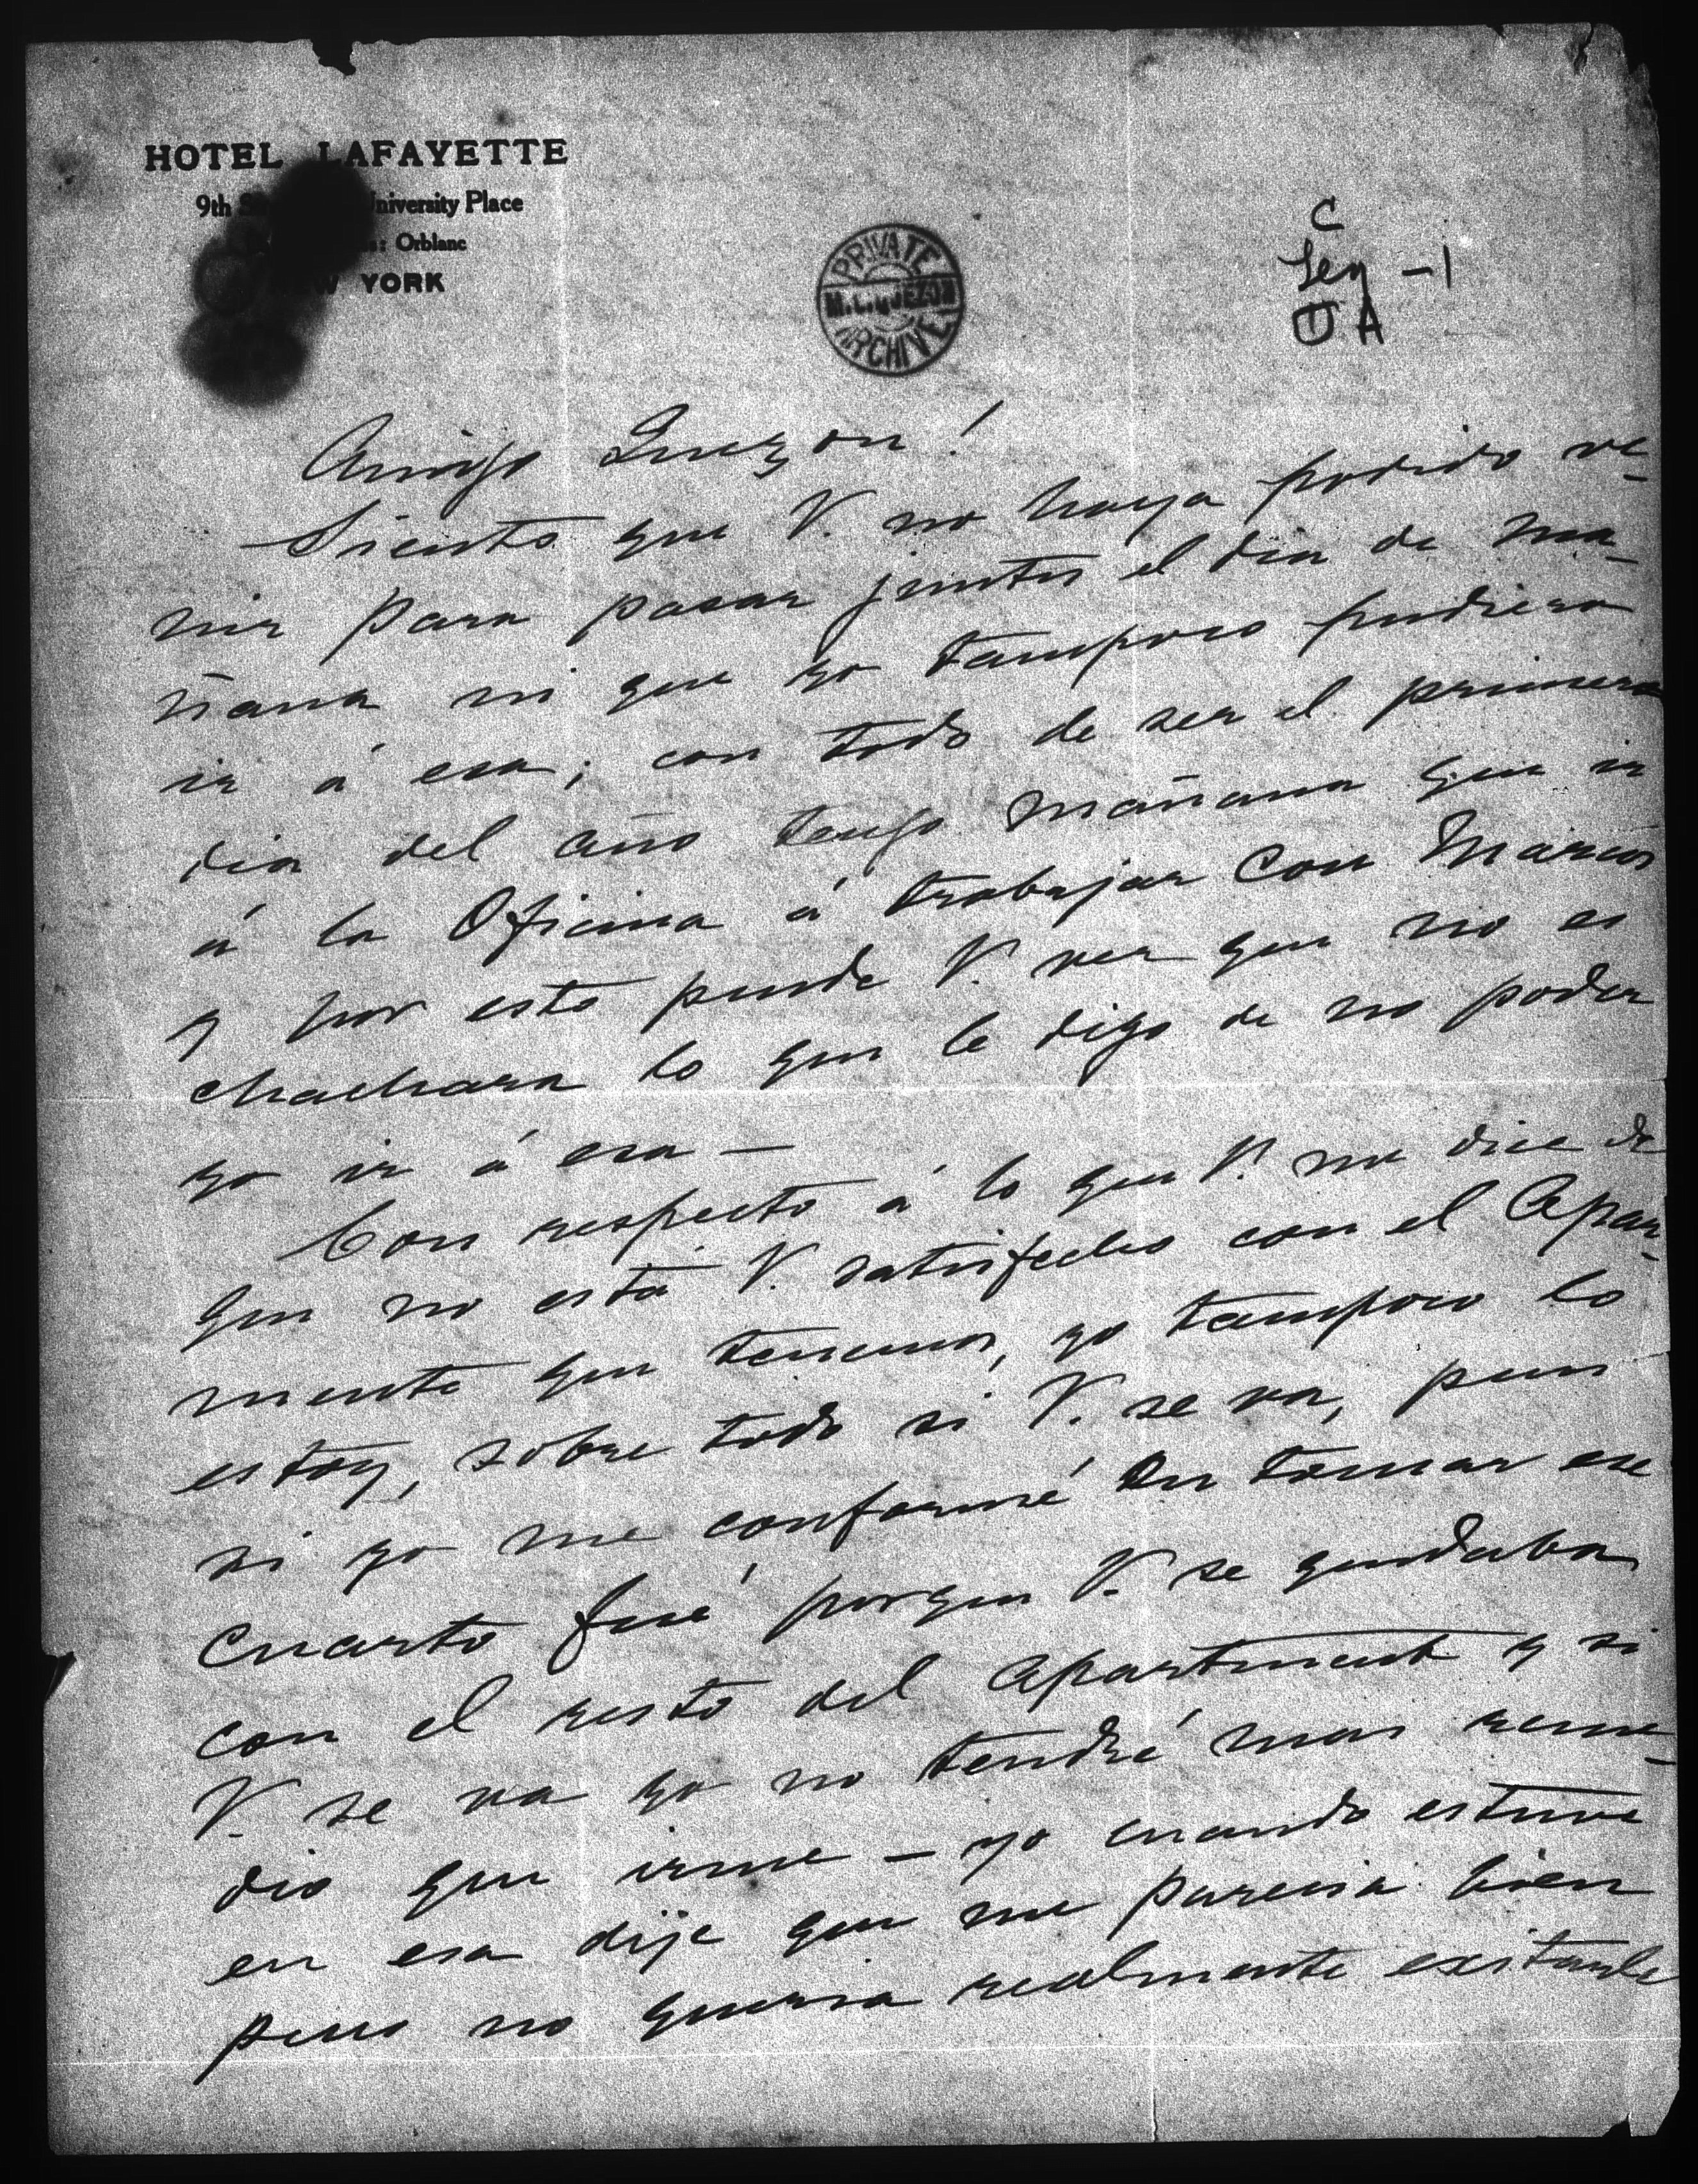 HOTEL LAFAYETTE
9th University Place
Orblanc
NEW YORK
PRIVATE
M.L. QUEZON
ARCHIVE
C
Gen - 1
O A
Amigo Quezon!
Siento que V. no haya podido ve-
nir para pasar juntos el dia de ma-
ñana ni que yo tampoco pudiera
ir á esa; con todo de ser el primero
dia del año tengo mañana que ir
á la Oficina á trabajar con Marcos
y por esto puede V. ver que no es
chachara lo que le digo de no poder
yo ir á esa —
Con respecto á lo que V. me dice de
que no está V. satisfecho con el Apar-
mente que tenemos, yo tampoco lo
estoy, sobre todo si V. se va, pues
si yo me conformé en tomar ese
cuarto fué porque V. se quedaba
con el resto del apartment y si
V. se va yo no tendré mas reme-
dio que irme — yo cuando estuve
en esa dije que me parecia bien
pero no queria realmente exitarle